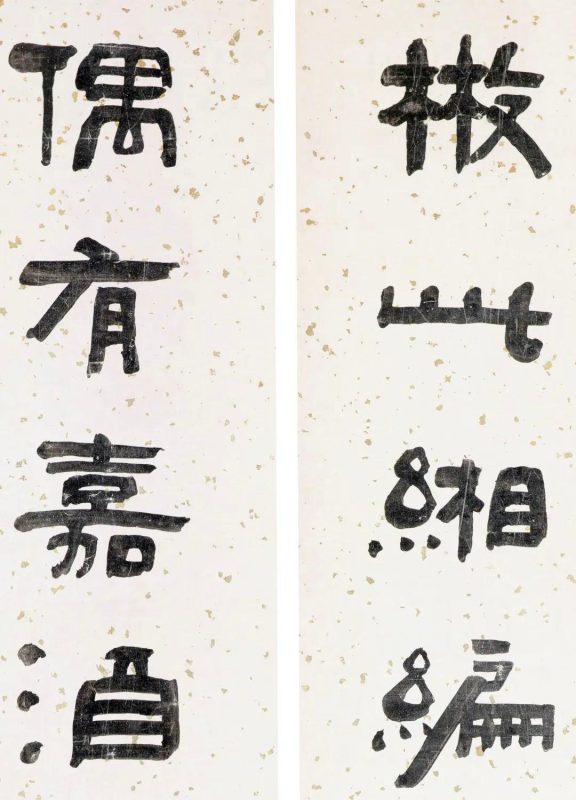 㪔此緗編
偶有嘉酒